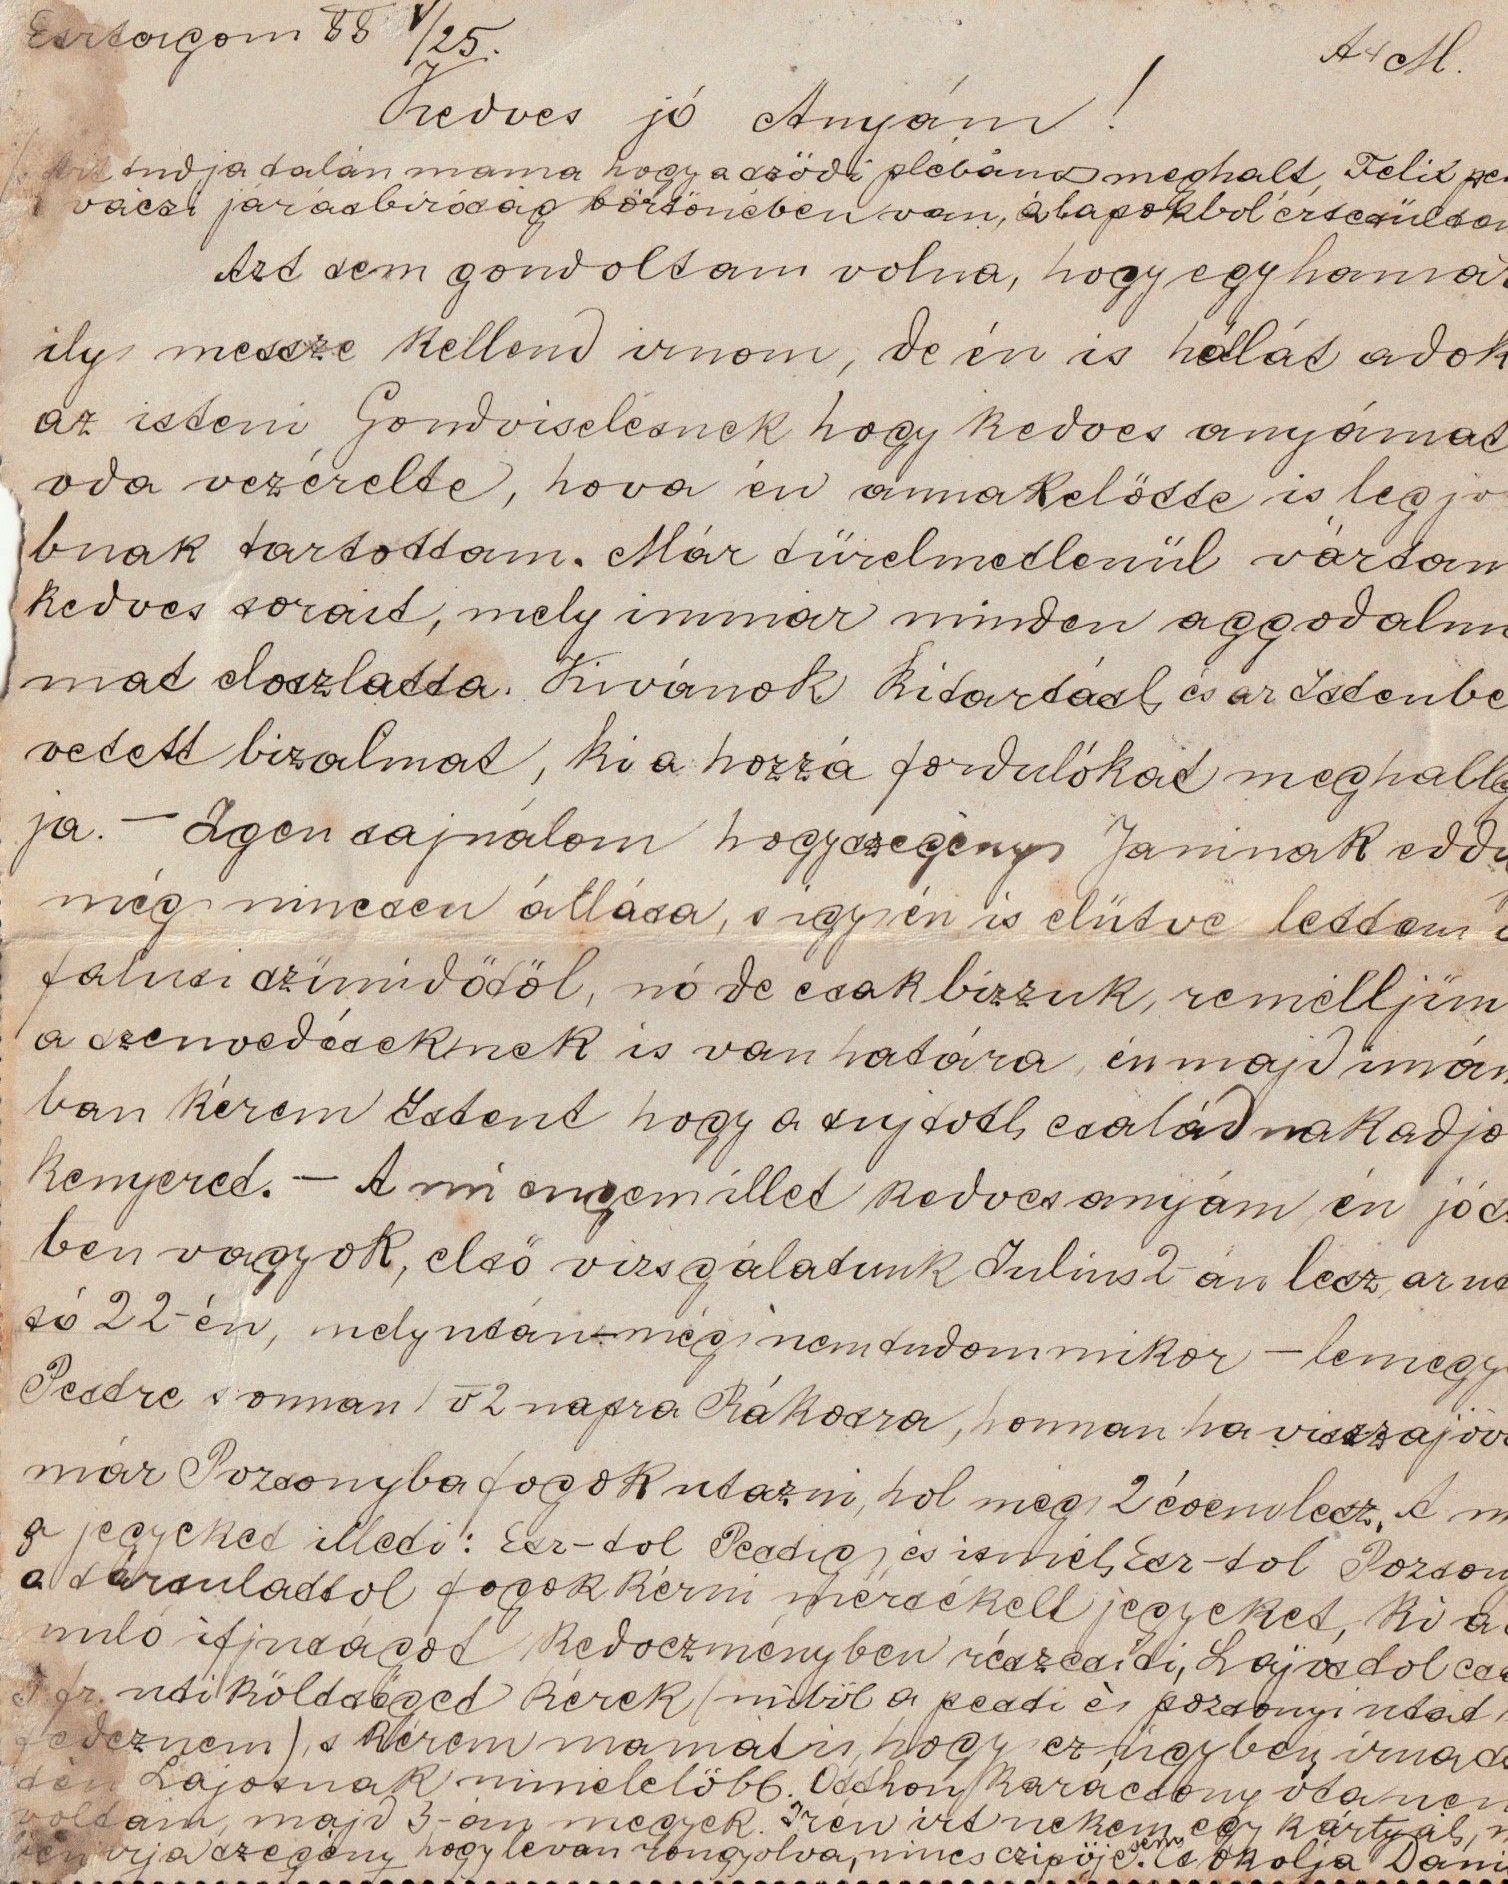 Esztergom 88 V/25.
A M.
Kedves jó Anyám!
tudja talán mama hogy a sződi plébános meghalt, Felix
váczi járásbiróság börtönében van, a lapokbol értesültem
Azt sem gondoltam volna, hogy egyhamar
ily messze kellend irnom, de én is hálát adok
az isteni Gondviselésnek hogy kedves anyámat
oda vezérelte, hova én annakelőtte is legjo
bnak tartottam. Már türelmetlenül vártam
kedves sorait, mely immár minden aggodalm
mat eloszlatta. Kivánok kitartást, és az Istenbe
vetett bizalmat, ki a hozzá fordulókat meghallg
ja. – Igen sajnálom hogy szegény Janinak eddi
még nincsen állása, s igy én is elütve lettem
falusi szünidőtől, nó de csak bizzuk, remélljün
a szenvedéseknek is van határa, én majd imám
ban kérem Istent hogy a sujtott családnak adjo
kenyeret. – A mi engem illet kedves anyám én jó
ben vagyok, első vizsgálatunk Julius 2-án lesz, az ut
só 22-én, mely után – még nem tudom mikor – lemegy
Pestre s onnan 1 v 2 napra Rákosra, honnan ha visszajöv
már Pozsonyba fogok utazni, hol még 2 évem lesz. A m
a jegyeket illeti: Esz-tol Pestig, és ismét Esz-tol Pozson
a társulattol fogok kérni mérsékelt jegyeket, ki a
nuló ifjuságot kedvezményben részesiti, Lajostol csa
fr. uti költséget kérek (miből a pesti és pozsonyi utat
fedeznem), s kérem mamát is, hogy ez ügyben irna
Lajosnak minélelőbb. Otthon karácsony óta nem
voltam, majd 3-án megyek. Irén irt nekem egy kártyát,
irja szegény hogy le van rongyolva, nincs czipője sem. Csokolja Dáni